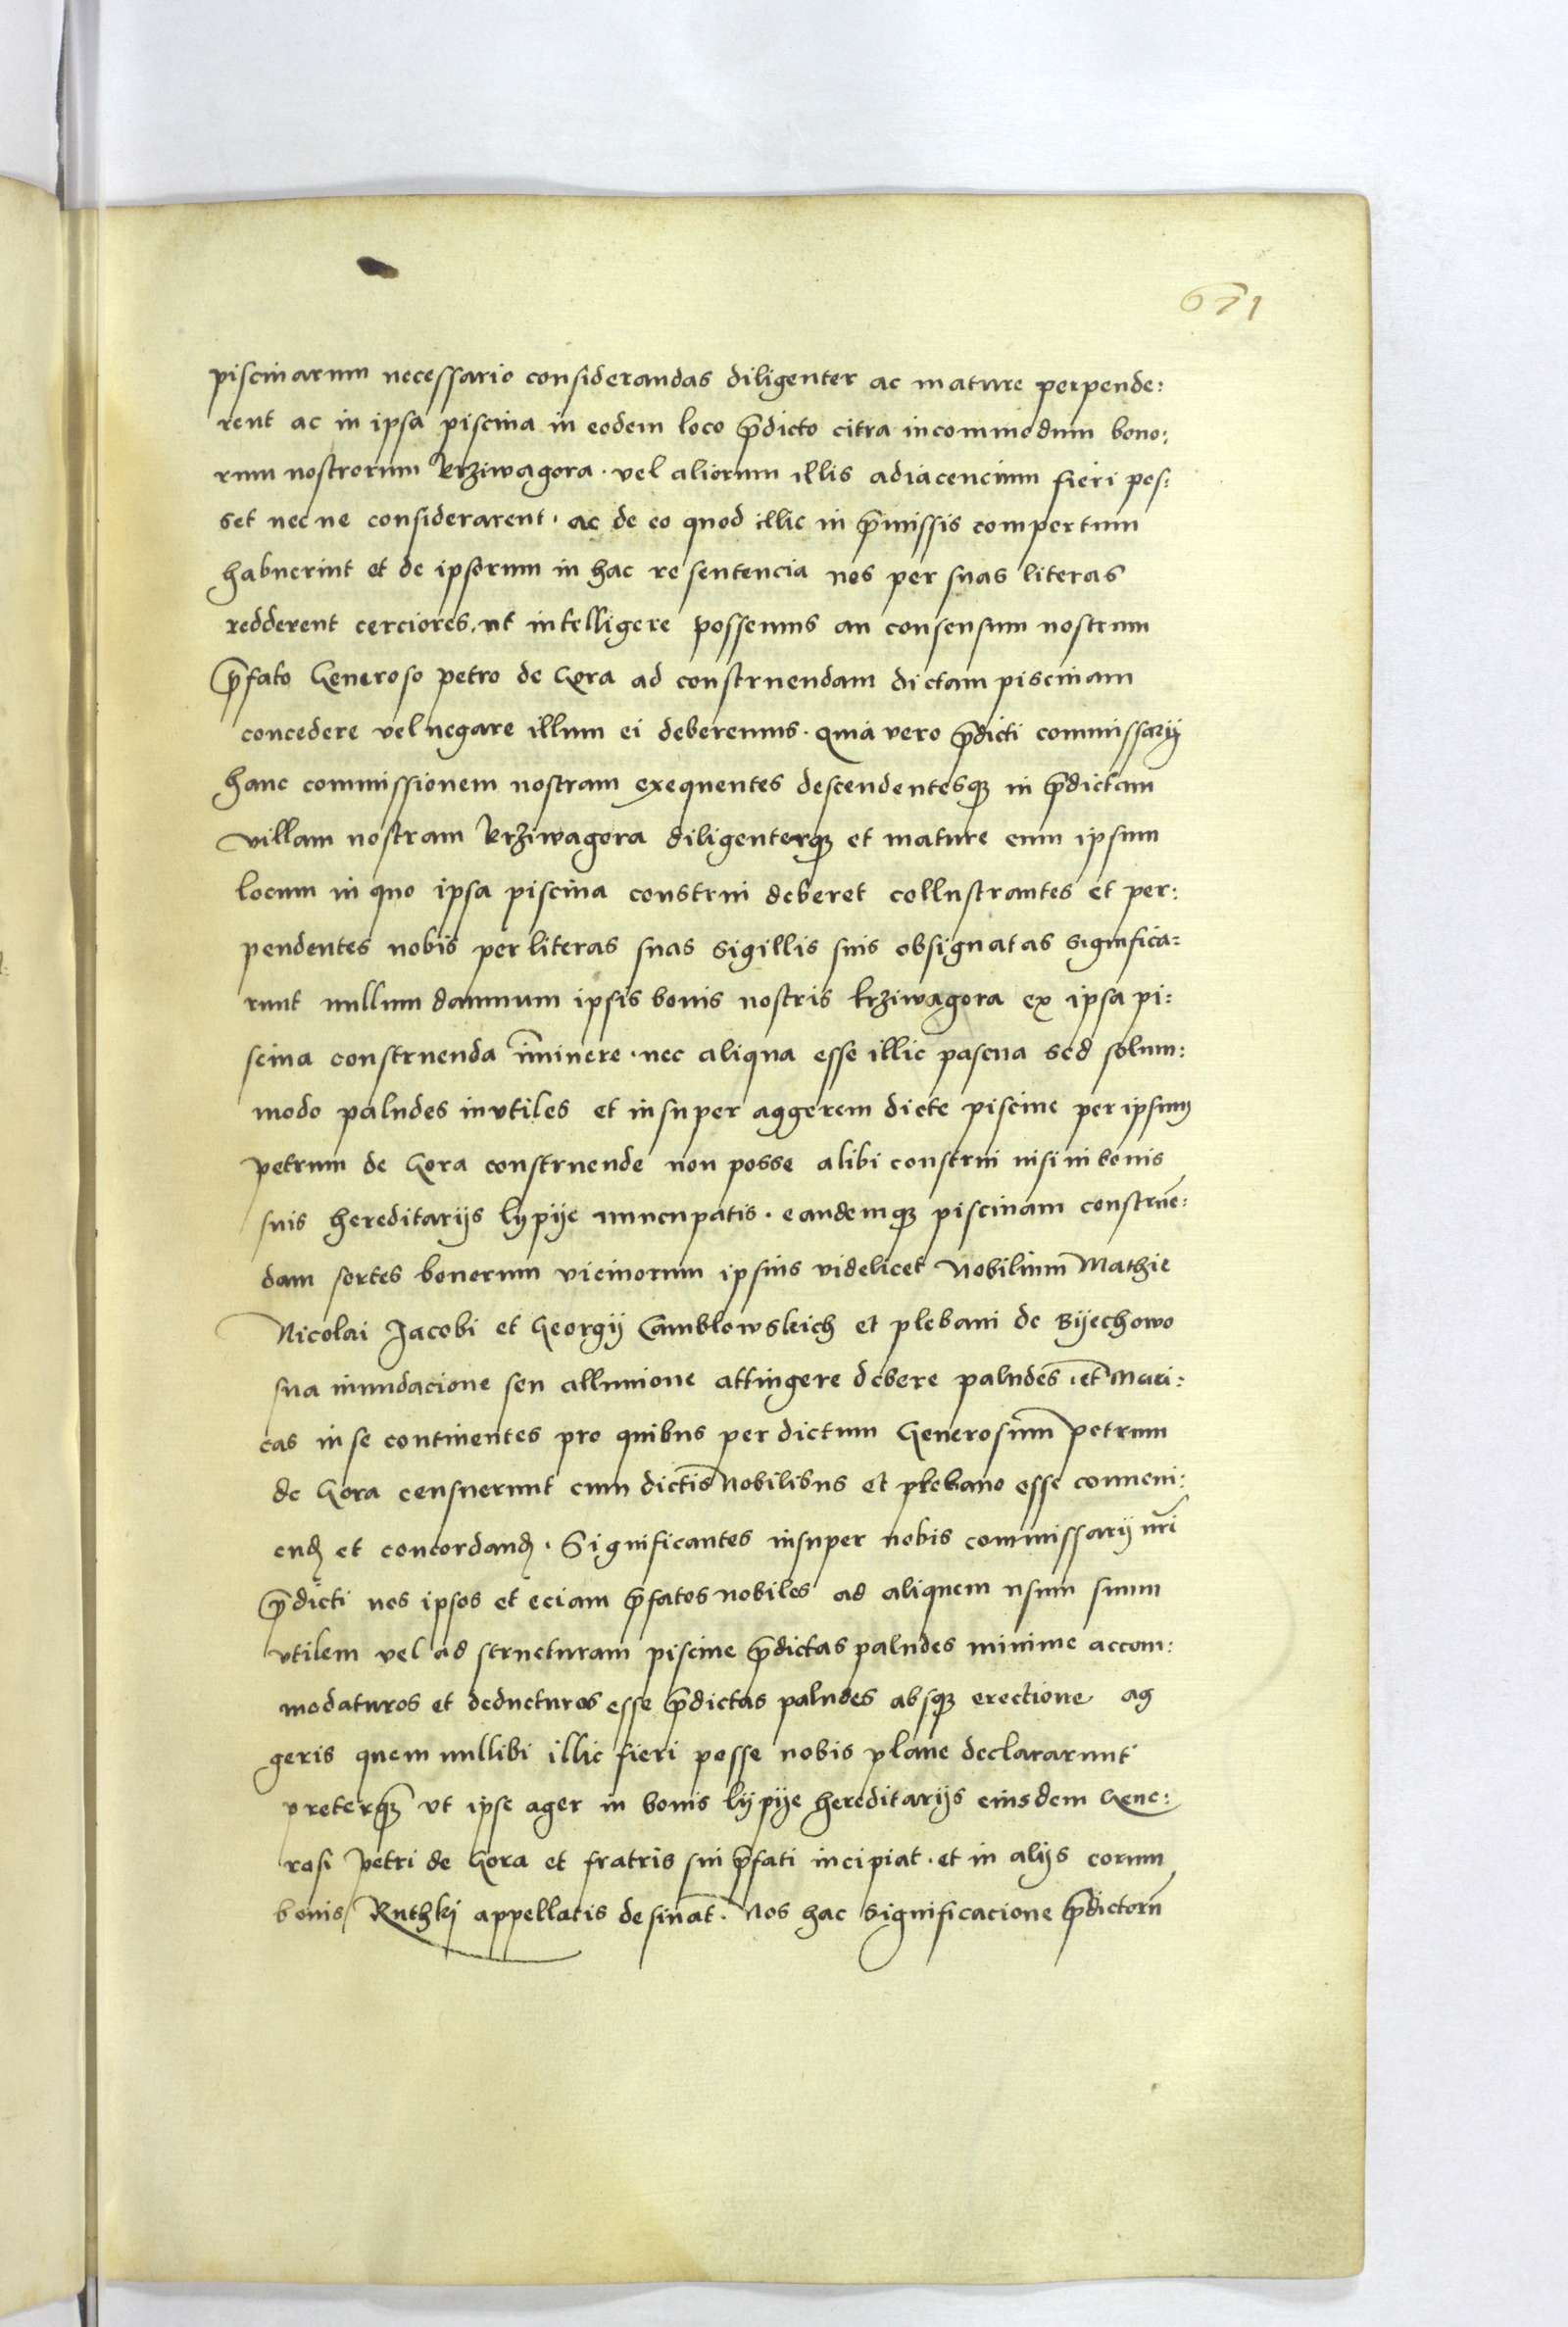 671
piscinarum necessario considerandas diligenter ac mature perpende:
rent ac in ipsa piscina in eodem loco p̄dicto citra incommodum bono:
rum nostrorum Krziwagora . vel aliorum illis adiacencium fieri pos:
set nec ne considerarent . ac de eo quod illic in p̄missis compertum
habuerint et de ipsorum in hac re sentencia nos per suas literas
redderent cerciores, ut intelligere possemus an consensum nostrum
p̄fato Generoso petro de Gora ad construendam dictam piscinam
concedere vel negare illum ei deberemus . quia vero p̄dicti commissarij
hanc commissionem nostram exequentes descendentesqꝫ in p̄dictam
villam nostram Krziwagora diligenterqꝫ et mature eum ipsum
locum in quo ipsa piscina construi deberet collustrantes et per:
pendentes nobis per literas suas sigillis suis obsignatas significa:
runt nullum damnum ipsis bonis nostris krziwagora ex ipsa pi:
scina construenda im̄inere . nec aliqua esse illic pascua sed solum:
modo paludes inutiles et insuper aggerem dicte piscine per ipsum
petrum de Gora construende non posse alibi construi nisi in bonis
suis hereditarijs lypije nuncupatis . eandemqꝫ piscinam construē:
dam sortes bonorum vicinorum ipsius videlicet Nobilium Mathie
Nicolai Jacobi et Georgij Camblowskich et plebani de Byechowo
sua inundacione seu alluuione attingere debere paludes . et Meri:
cas in se continentes pro quibus per dictum Generosum petrum
de Gora censuerunt cum dictis Nobilibus et plebano esse conueni:
endꝫ et concordandꝫ . Significantes insuper nobis commissarij nr̄i
p̄dicti nos ipsos et eciam p̄fatos nobiles ad aliquem usum suum
vtilem vel ad structuram piscine p̄dictas paludes minime accom:
modaturos et deducturos esse p̄dictas paludes absqꝫ erectione ag
geris quem nullibi illic fieri posse nobis plane declararunt
preterqꝫ̄ vt ipse ager in bonis lijpije hereditarijs eiusdem Gene:
rosi Petri de Gora et fratris sui p̄fati incipiat . et in alijs eorum
bonis Ruthki appellatis desinat . Nos hac significacione p̄dictorū